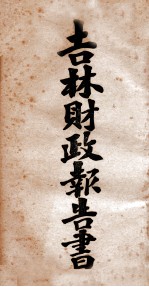 吉林財政報告書